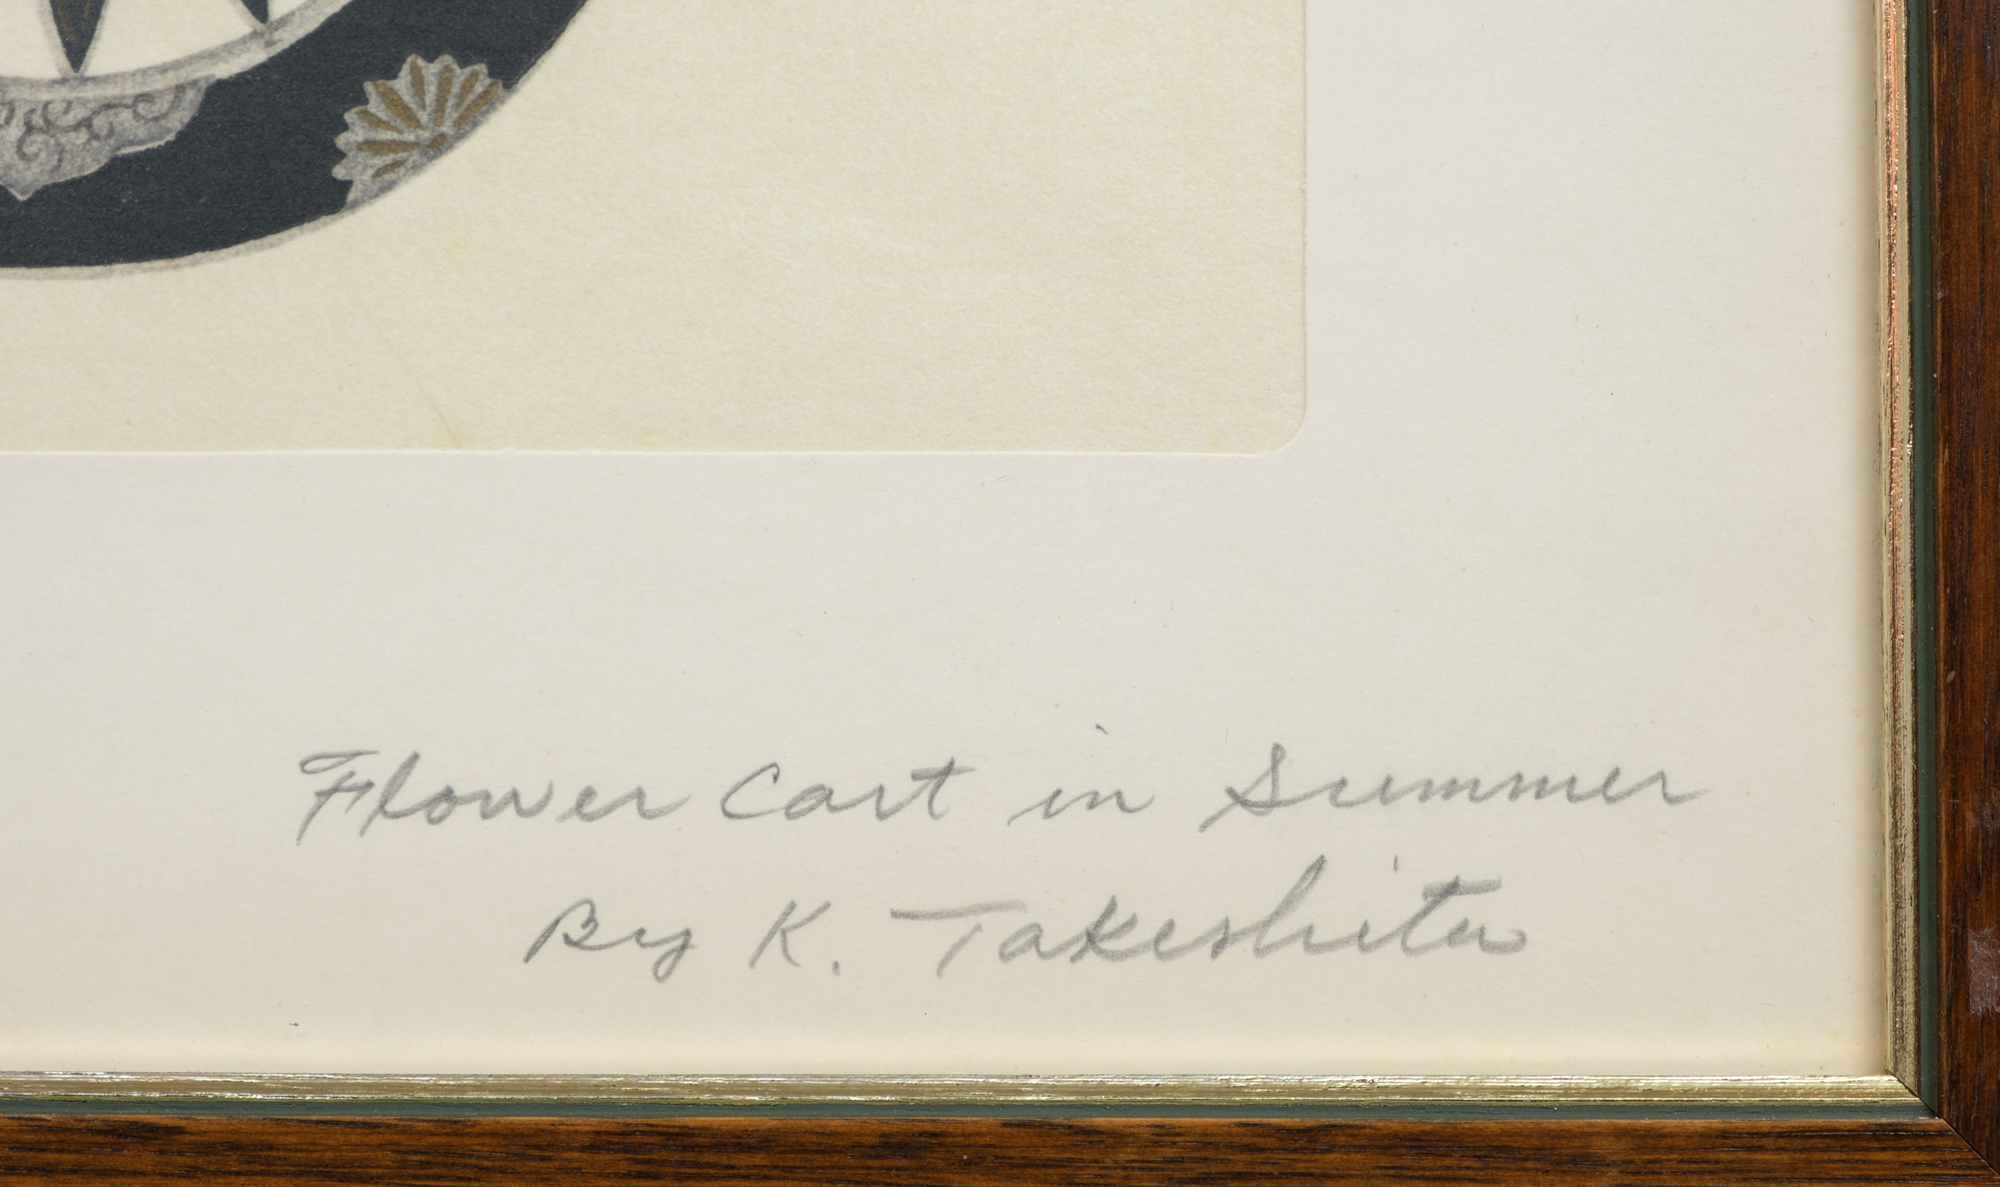 Flower Cart in Summer
By K. Takeshita